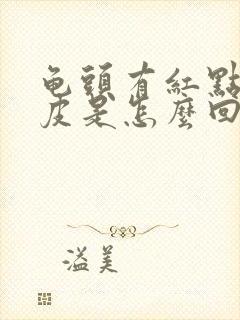 龟頭有紅點
皮是怎麼回
溢美